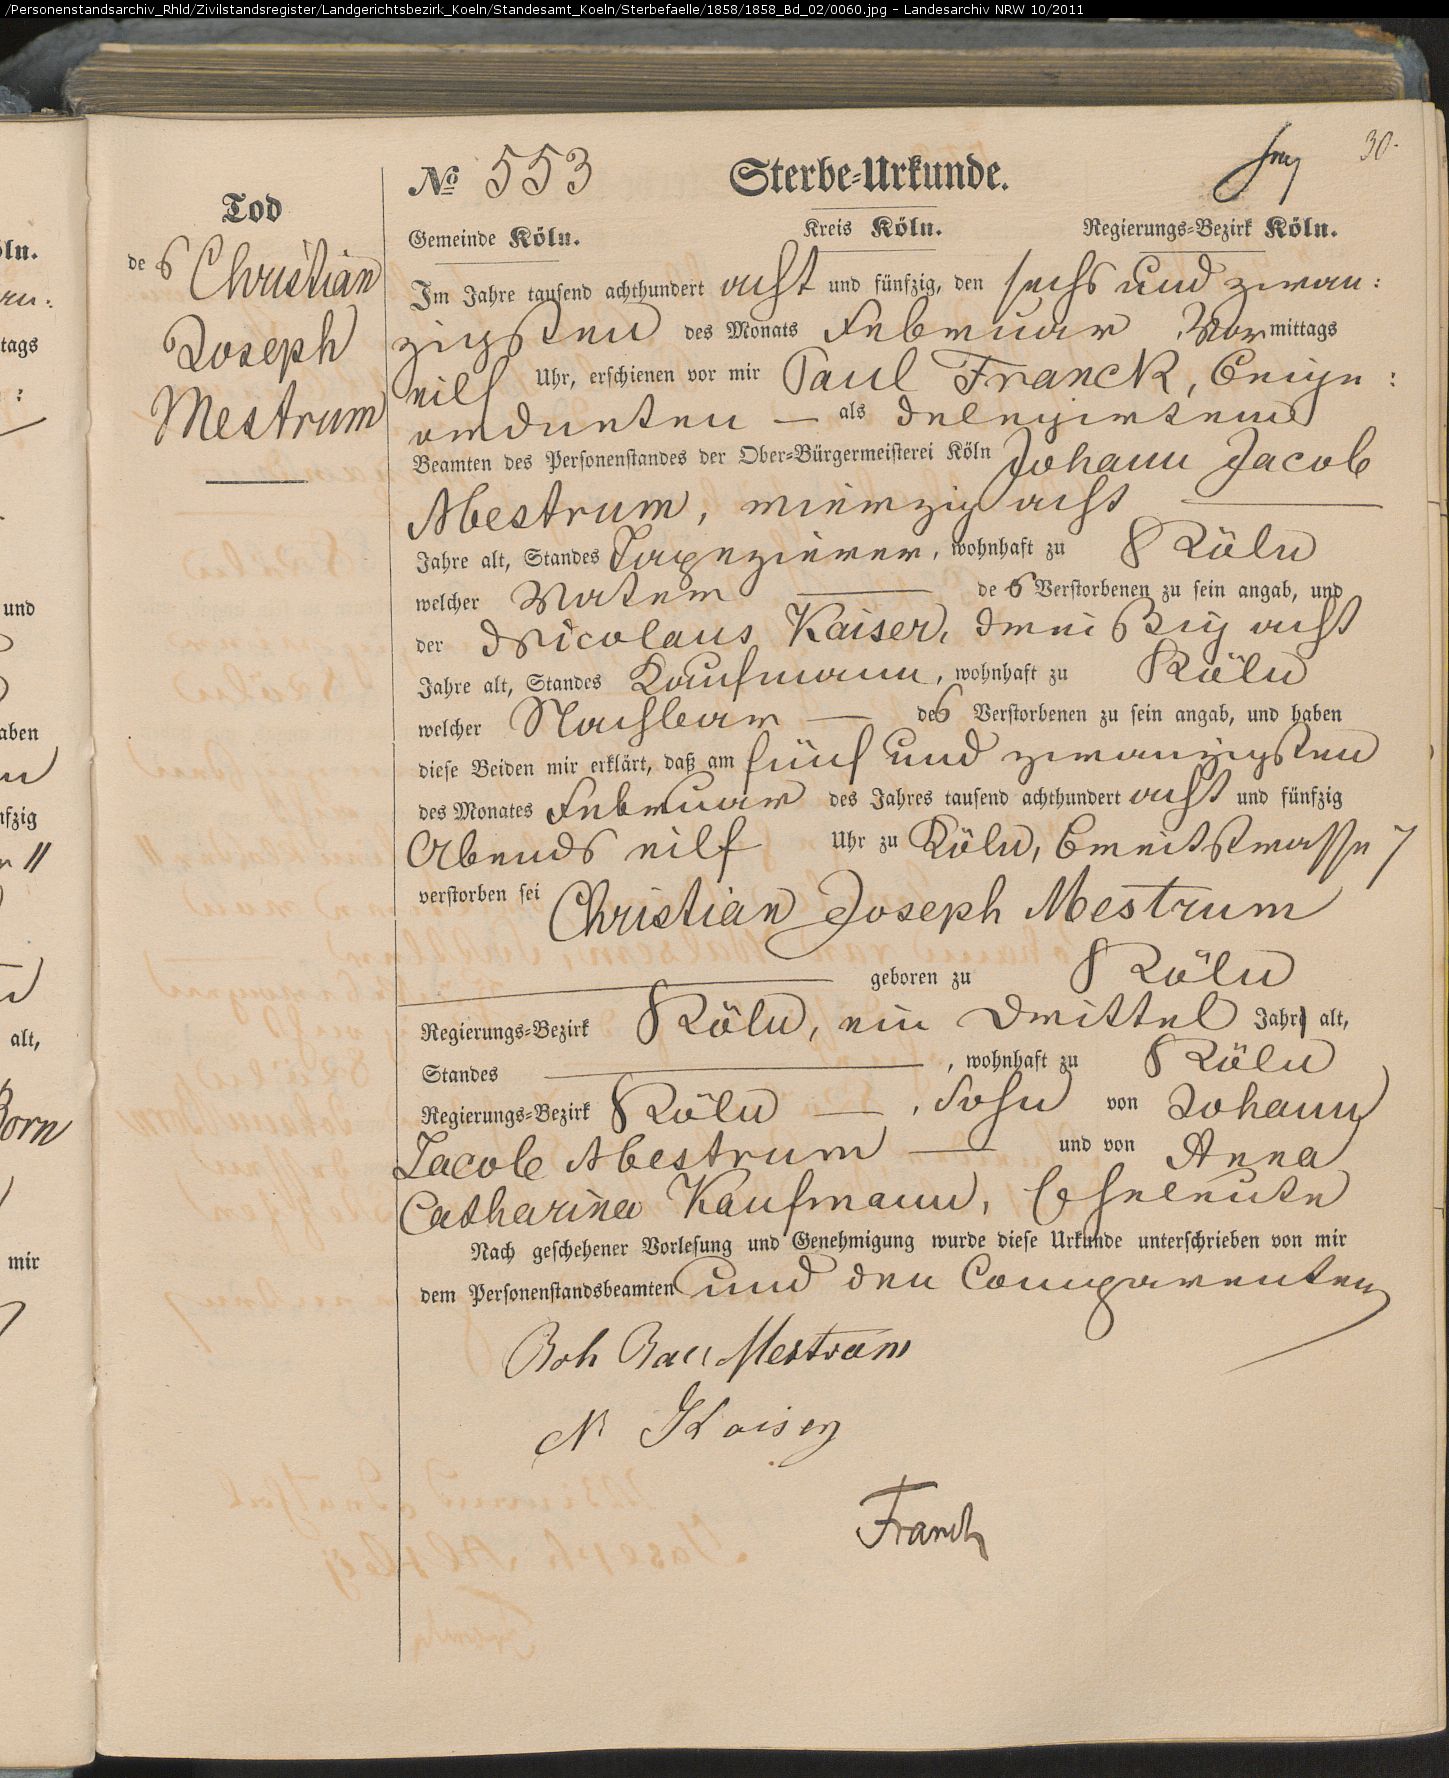 /Personenstandsarchiv_Rhld/Zivilstandsregister/Landgerichtsbezirk_Koeln/Standesamt_Koeln/Sterbefaelle/1858/1858_Bd_02/0060.jpg - Landesarchiv NRW 10/2011
30.
No 553 Sterbe-Urkunde.
Gemeinde Köln. Kreis Köln. Regierungs-Bezirk Köln.
Tod
des Christian
Joseph
Mestrum
Im Jahre tausend achthundert acht und fünfzig, den sechs und zwan:
zigsten des Monats Februar Vormittags
eilf Uhr, erschienen vor mir Paul Franck, Beige:
ordneten — als delegirtem
Beamten des Personenstandes der Ober-Bürgermeisterei Köln Johann Jacob
Mestrum, vierzig acht
Jahre alt, Standes Tapezierer, wohnhaft zu Köln
welcher Vater des Verstorbenen zu sein angab, und
der Nicolaus Kaiser, dreißig acht
Jahre alt, Standes Kaufmann, wohnhaft zu Köln
welcher Nachbar — des Verstorbenen zu sein angab, und haben
diese Beiden mir erklärt, daß am fünf und zwanzigsten
des Monates Februar des Jahres tausend achthundert acht und fünfzig
Abends eilf Uhr zu Köln, Breitstrasse 7
verstorben sei Christian Joseph Mestrum
geboren zu Köln
Regierungs-Bezirk Köln, ein Drittel Jahr alt,
Standes —, wohnhaft zu Köln
Regierungs-Bezirk Köln —, Sohn von Johann
Jacob Mestrum — und von Anna
Catharina Kaufmann, Eheleute
Nach geschehener Vorlesung und Genehmigung wurde diese Urkunde unterschrieben von mir
dem Personenstandsbeamten und den Comparenten
Mestrum
N Kaiser
Franck
öln.
tags
und
aben
nfzig
alt,
Born
mir